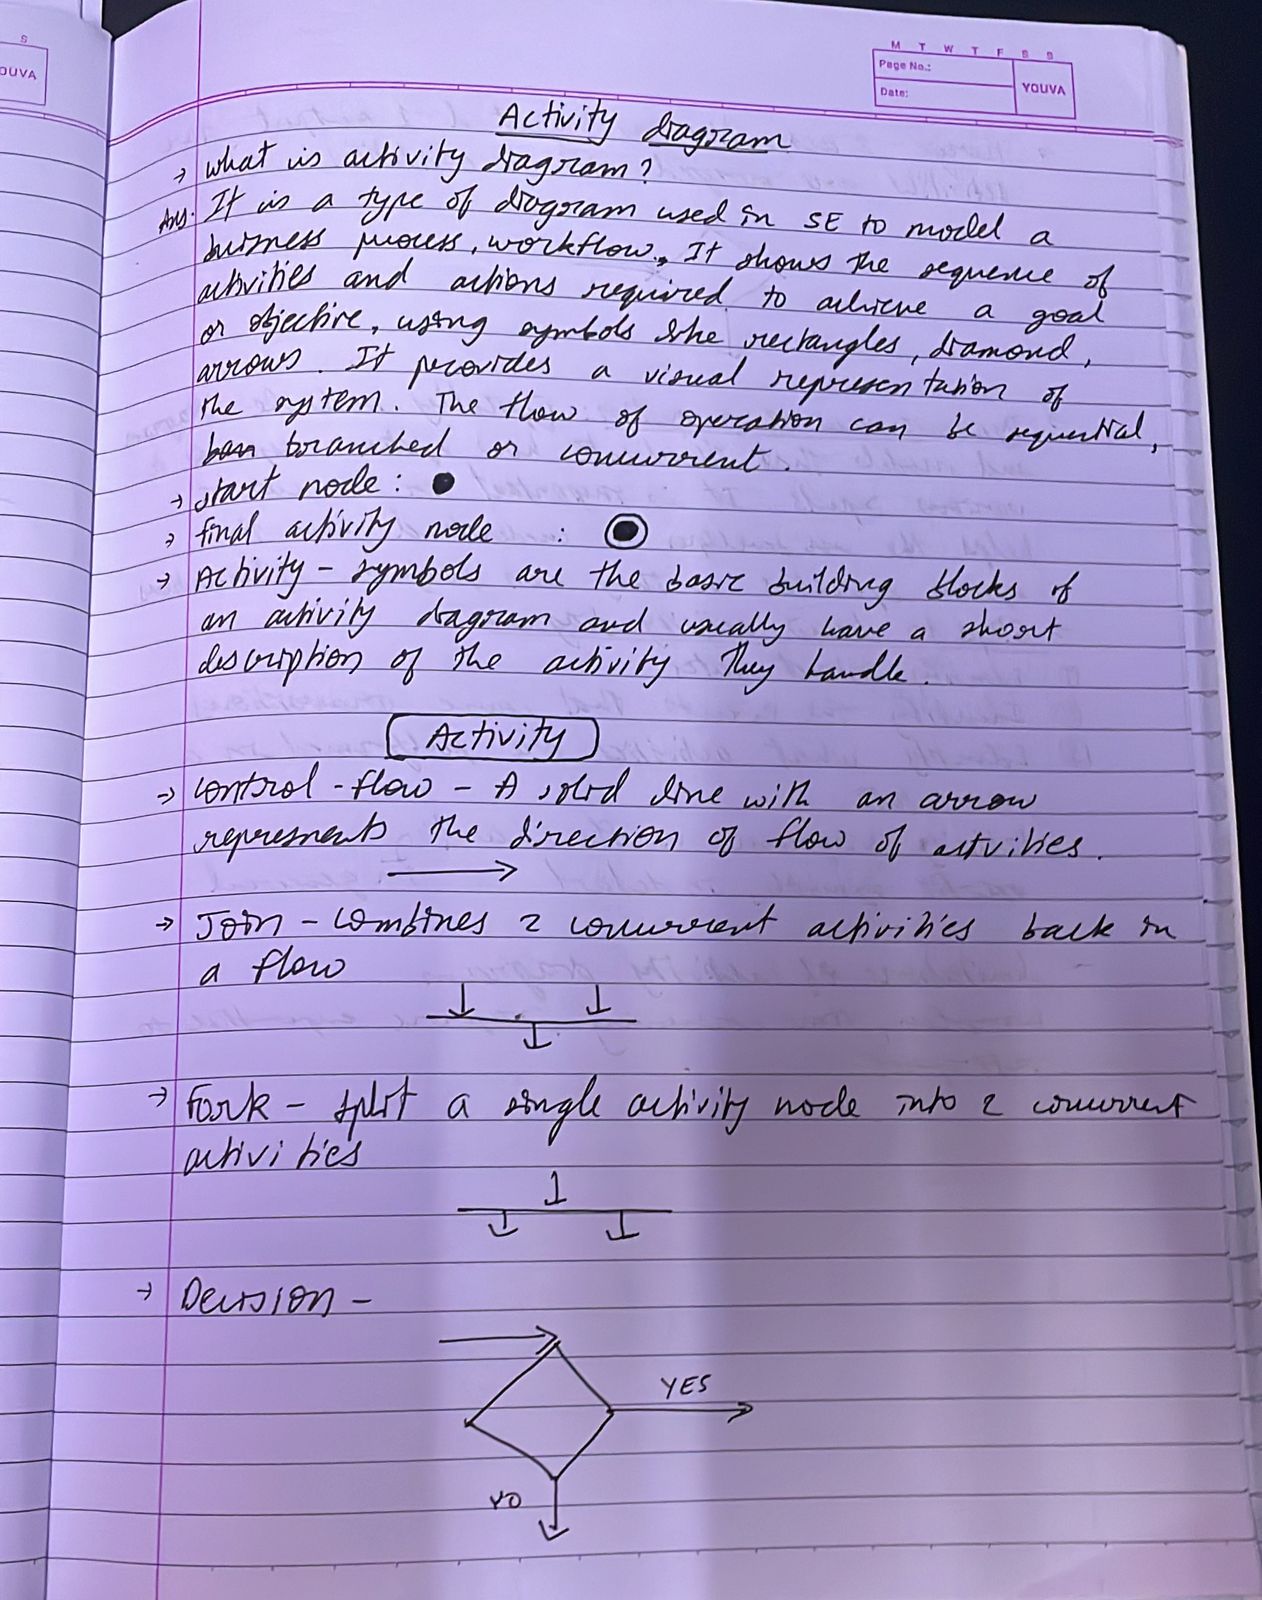 S
OUVA
M T W T F S S
Page No.:
YOUVA
Date:
Activity diagram
→ what is activity diagram?
Ans. It is a type of diagram used in SE to model a
business process, workflow. It shows the sequence of
activities and actions required to achieve a goal
or objective, using symbols like rectangles, diamond,
arrows. It provides a visual representation of
the system. The flow of operation can be sequential,
branched or concurrent.
→ start node:
→ final activity node :
→ Activity - symbols are the basic building blocks of
an activity diagram and usually have a short
description of the activity they handle.
Activity
→ control-flow - A solid line with an arrow
represents the direction of flow of activities.
→ Join - combines 2 concurrent activities back in
a flow
→ Fork - split a single activity node into 2 concurrent
activities
→ Decision -
YES
NO